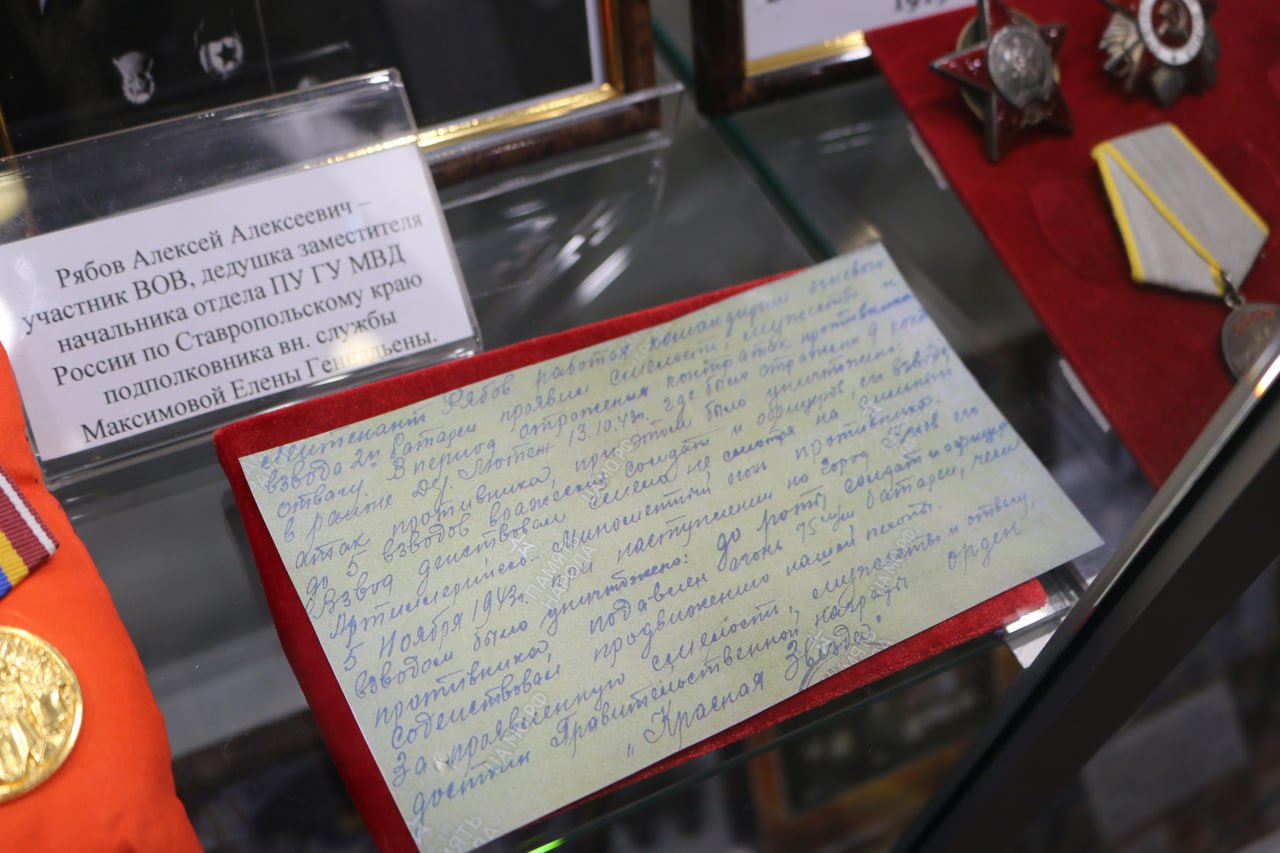 Рябов Алексей Алексеевич –
участник ВОВ, дедушка заместителя
начальника отдела ПУ ГУ МВД
России по Ставропольскому краю
подполковника вн. службы
Максимовой Елены Геннадьены.
лейтенант Рябов работая командиром огневого
взвода 2й батареи проявил смелость, мужество и
отвагу. В период отражения контратак противника
в районе дер. Мотеж 13.10.43г. где было отражено 9 конт
атак противника, при этом было уничтожено
до 5 взводов вражеских солдат и офицеров, его взвод
Взвод действовал смело не смотря на сильный
Артиллерийско Миномётный огонь противника.
5 Ноября 1943г. при наступлении на город его
взводом было уничтожено: до роты солдат и офицер
противника, подавлен огонь 75 м/м батареи, чем
содействовал продвижению нашей пехоты.
За проявленную смелость, мужество и отвагу,
достоин Правительственной награды орден
„Красная Звезда".
ПАМЯТЬ
НАРОДА
ПАМЯТЬ
НАРОДА